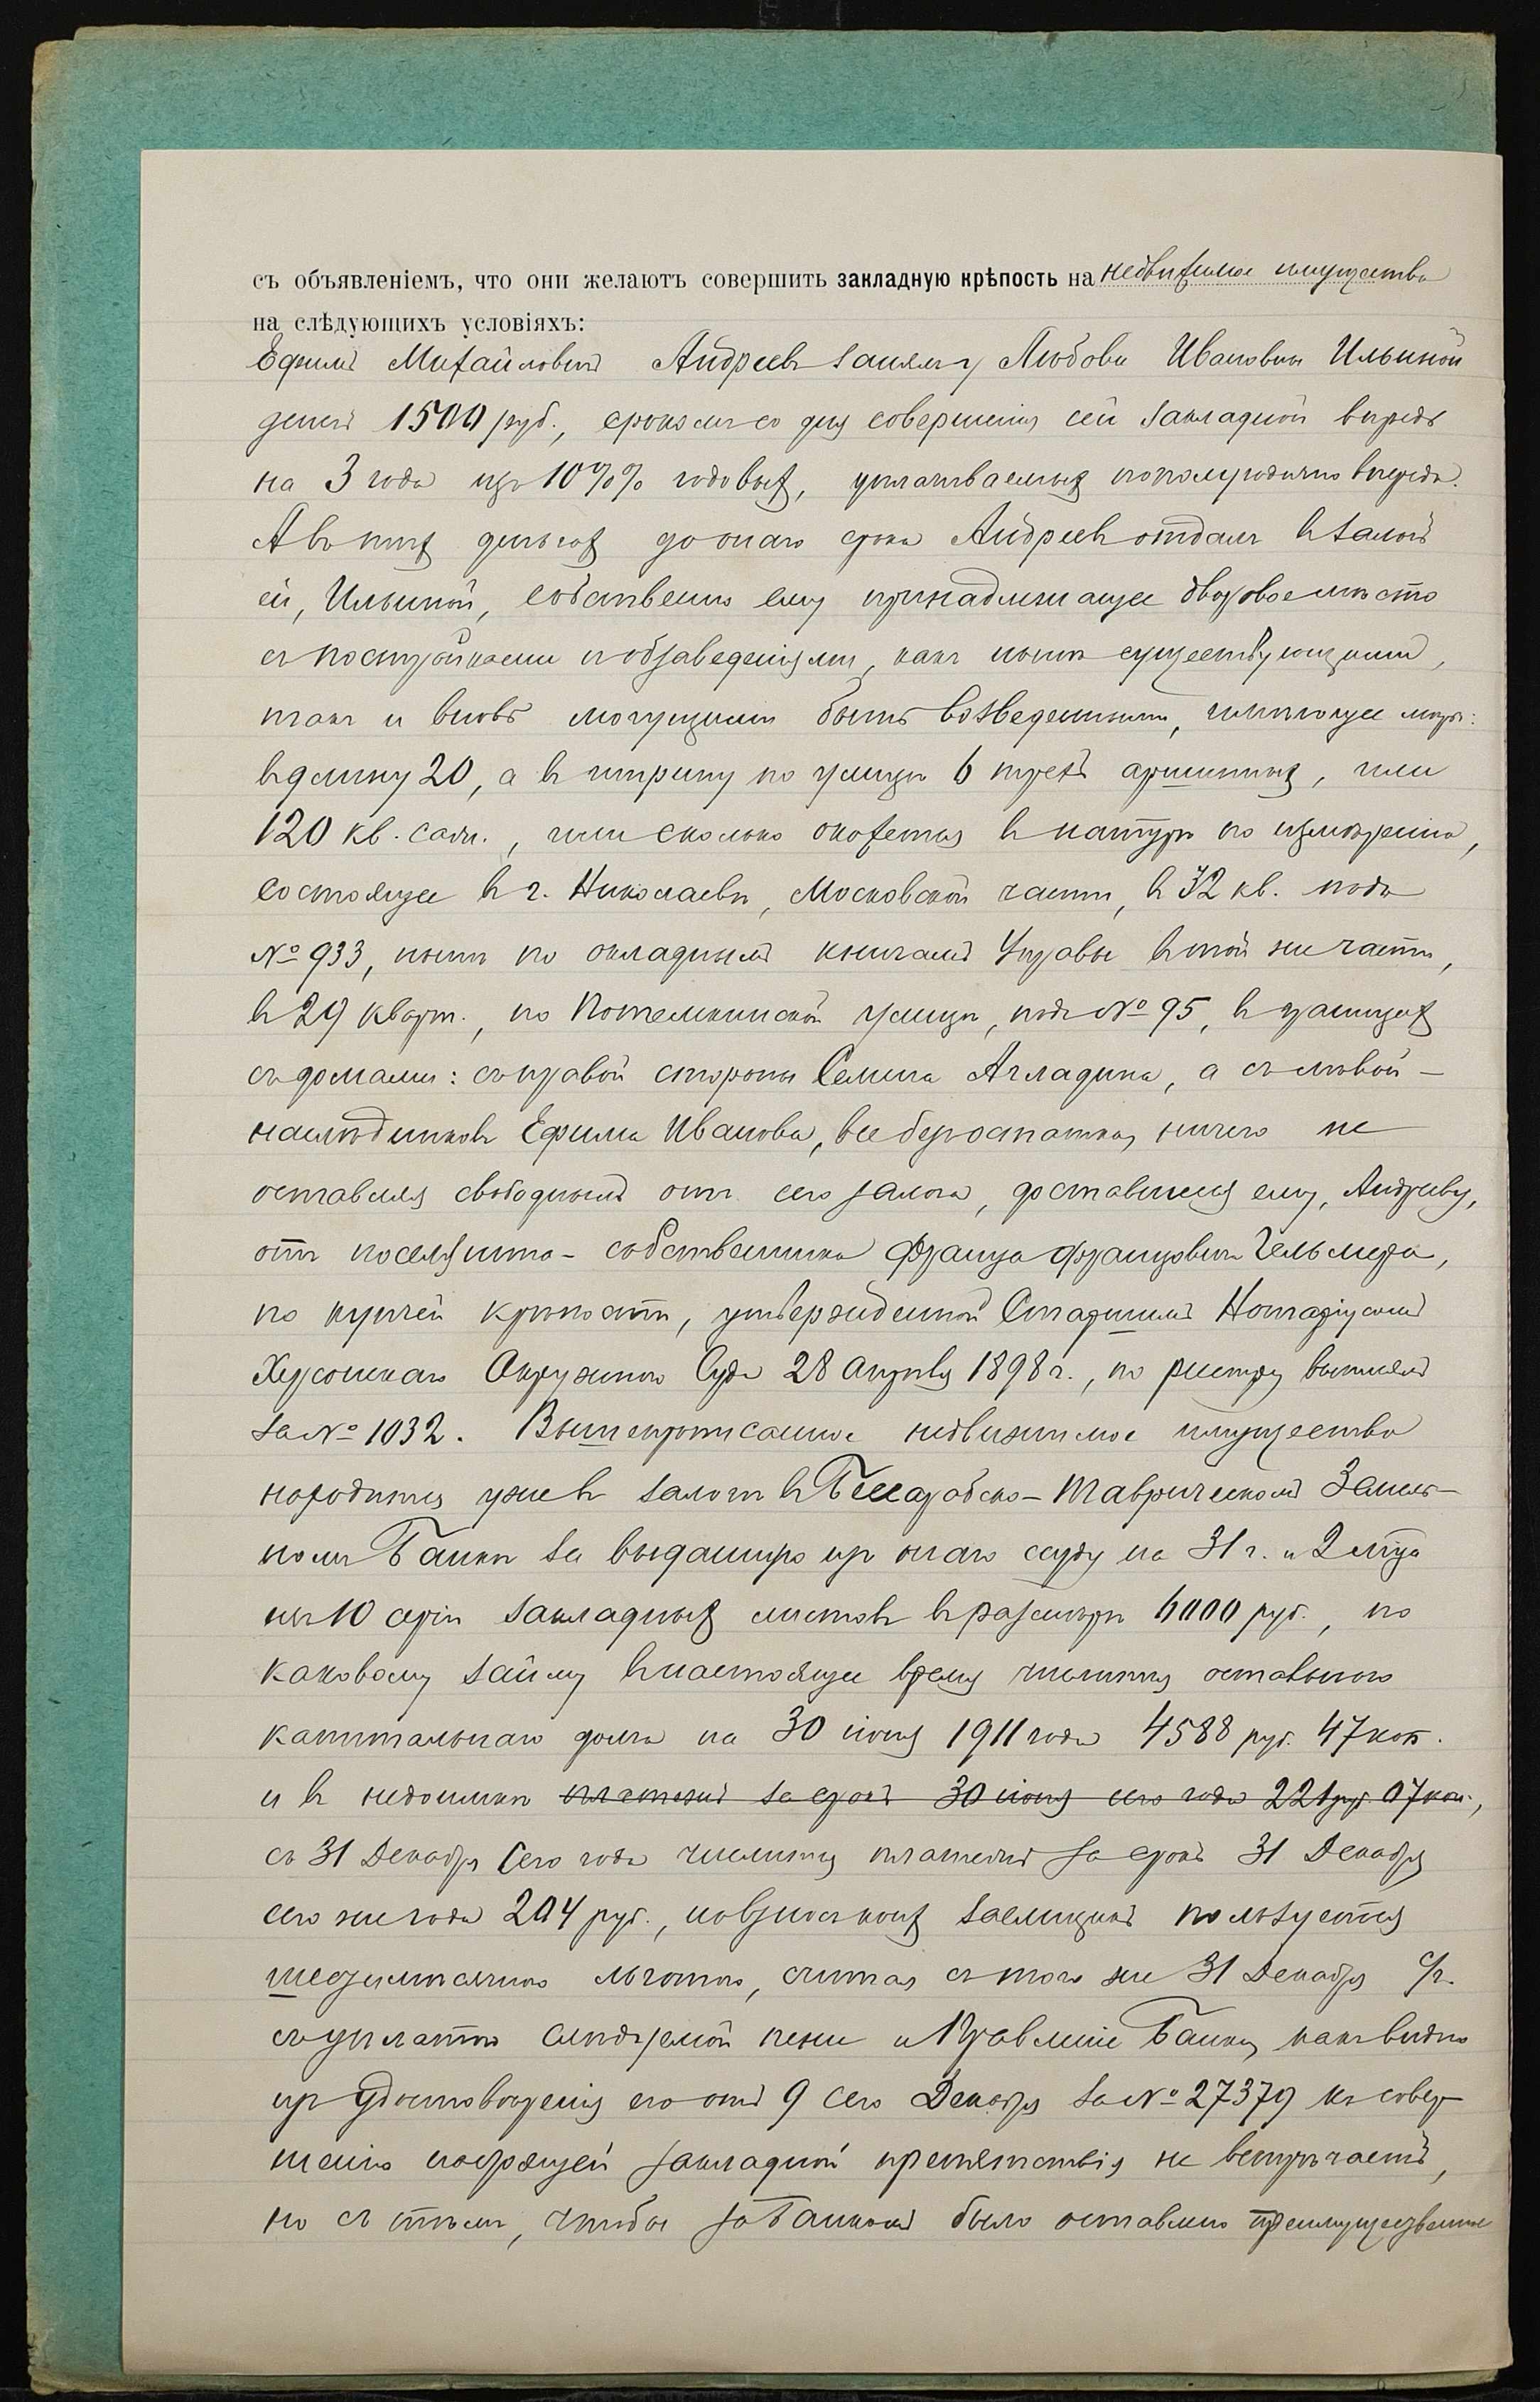 съ объявленіемъ, что они желаютъ совершить закладную крѣпость на недвижимое имущество
на слѣдующихъ условіяхъ:
Ефимъ Михайловичъ Андреевъ занялъ у Любови Ивановны Ильиной
денегъ 1500 руб., срокомъ со дня совершенія сей закладной впредь
на 3 года изъ 10%% годовыхъ, уплачиваемыхъ пополугодично впередъ.
А въ тѣхъ деньгахъ до онаго срока Андреевъ отдалъ въ залогъ
ей, Ильиной, собственно ему принадлежащее дворовое мѣсто
съ постройками и обзаведеніями, какъ нынѣ существующими,
такъ и вновь могущими быть возведенными, имѣющее мѣры:
въ длину 20, а въ ширину по улицѣ 6 трехъ аршинныхъ, или
120 кв. саж., или сколько окажется въ натурѣ по измѣренію,
состоящее въ г. Николаевѣ, Московской части, въ 32 кв. подъ
№ 933, нынѣ по окладнымъ книгамъ Управы въ той же части,
въ 29 кварт., по Потемкинской улицѣ, подъ № 95, въ границахъ
съ домами: съ правой стороны Семена Агладина, а съ лѣвой –
наслѣдниковъ Ефима Иванова, все безъ остатка, ничего не
оставляя свободнымъ отъ сего залога, доставшееся ему, Андрееву,
отъ поселянина-собственника Франца Францовича Гельмера,
по купчей крѣпости, утвержденной Старшимъ Нотаріусомъ
Херсонскаго Окружнаго Суда 28 Апрѣля 1898 г., по реестру
за № 1032. Вышепрописанное недвижимое имущество
находится уже въ залогѣ въ Бессарабско-Таврическомъ Земель-
номъ Банкѣ за выданную изъ онаго ссуду на 31 г. и 2 м-ца
10 серіи закладныхъ листовъ въ размѣрѣ 6000 руб., по
каковому займу въ настоящее время числится остальнаго
капитальнаго долга на 30 іюня 1911 года 4588 руб. 47 коп.
и въ недоимкѣ платежей за срокъ 30 іюня сего года 221 руб. 07 коп.,
съ 31 Декабря сего года числится платежей за срокъ 31 Декабря
сего же года 204 руб., по взносѣ коихъ заемщикъ пользуется
шестимѣсячною льготою, считая съ того же 31 Декабря с/г.
съ уплатою слѣдуемой пени и Правленіе Банка, какъ видно
изъ удостовѣренія его отъ 9 сего Декабря за № 27379 къ совер-
шенію настоящей закладной препятствія не встрѣчаетъ,
но съ тѣмъ, чтобы за Банкомъ было оставлено преимущественное